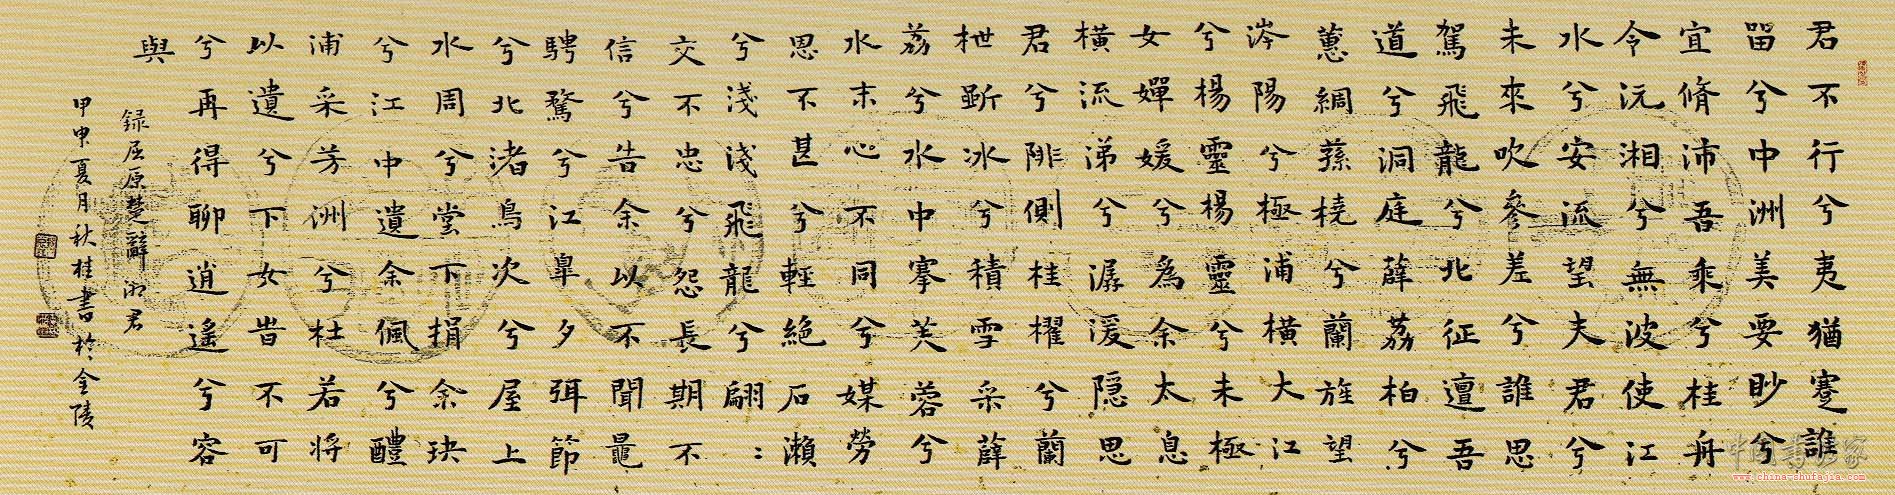 君不行兮夷猶蹇誰
留兮中洲美要眇兮
宜脩沛吾乘兮桂舟
令沅湘兮無波使江
水兮安流望夫君兮
未來吹參差兮誰思
駕飛龍兮北征邅吾
道兮洞庭薜荔柏兮
蕙綢蓀橈兮蘭旌望
涔陽兮極浦橫大江
兮楊靈楊靈兮未極
女嬋媛兮為余太息
橫流涕兮潺湲隱思
君兮陫側桂櫂兮蘭
枻斲冰兮積雪采薜
荔兮水中搴芙蓉兮
水末心不同兮媒勞
思不甚兮輕絕石瀨
兮淺淺飛龍兮翩:
交不忠兮怨長期不
信兮告余以不聞鼂
騁騖兮江皐夕弭節
兮北渚鳥次兮屋上
水周兮堂下捐余玦
兮江中遺余佩兮醴
浦采芳洲兮杜若將
以遺兮下女旹不可
兮再得聊逍遙兮容
與
録屈原楚辭湘君
甲申夏月秋桂書於金陵
www.china-shufajia.com